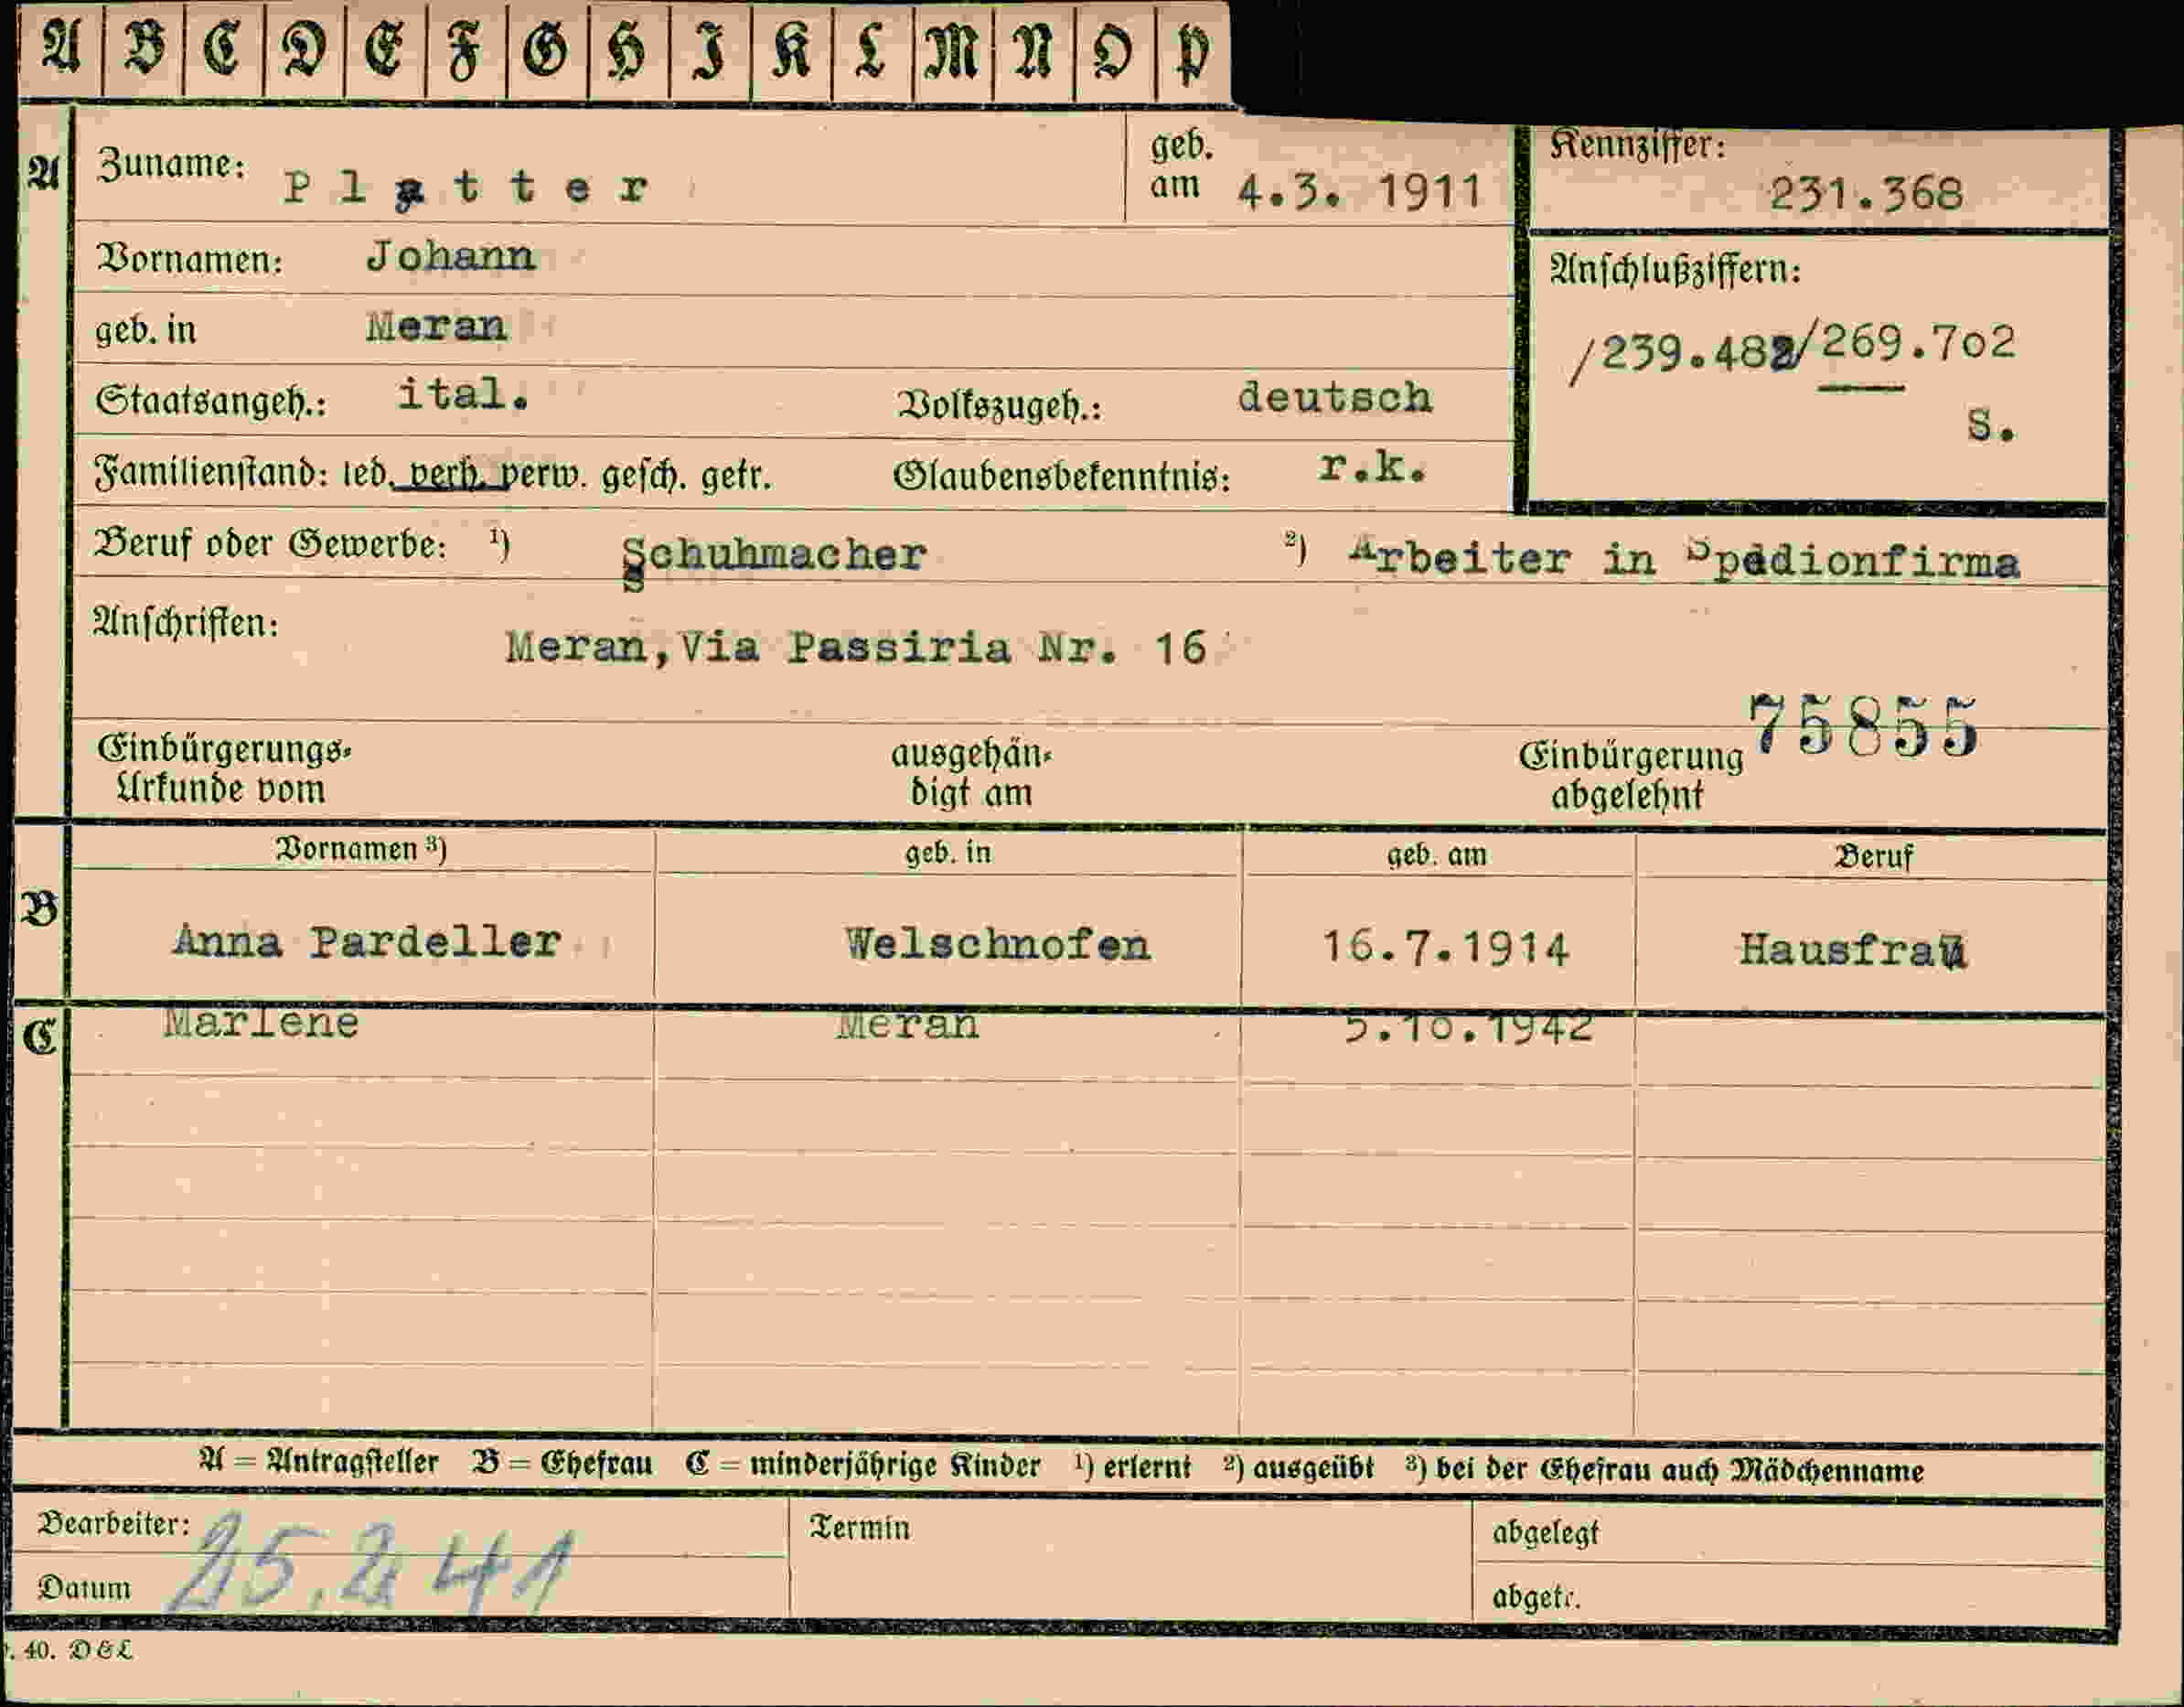 A B C D E F G H I K L M N O P
A
Zuname: Platter
geb. am 4.3. 1911
Kennziffer:
231.368
Vornamen: Johann
Anschlußziffern:
/239.482/269.702
S.
geb. in Meran
Staatsangeh.: ital. Volkszugeh.: deutsch
Familienstand: led. verh. verw. gesch. getr. Glaubensbekenntnis: r.k.
Beruf oder Gewerbe: 1) Schuhmacher 2) Arbeiter in Spedionfirma
Anschriften:
Meran,Via Passiria Nr. 16
75855
Einbürgerungs-
Urkunde vom
ausgehän-
digt am
Einbürgerung
abgelehnt
B
Vornamen 3) geb. in geb. am Beruf
Anna Pardeller Welschnofen 16.7.1914 Hausfrau
C
Marlene Meran 5.10.1942
A = Antragsteller B = Ehefrau C = minderjährige Kinder 1) erlernt 2) ausgeübt 3) bei der Ehefrau auch Mädchenname
Bearbeiter:
Datum 25.2 41
Termin
abgelegt
abgetr.
. 40. D&L